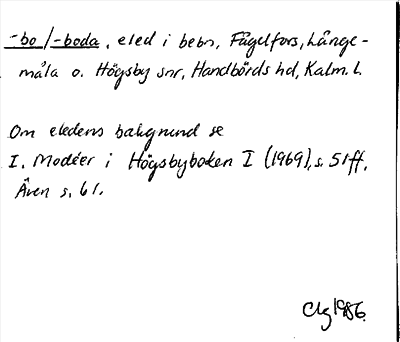 -bo/-boda, eled i bebn, Fågelfors, Långe-
måla o. Högsby snr, Handbörds hd, Kalm. l.
Om eledens bakgrund se
I. Modéer i Högsbyboken I (1969), s. 51ff.
Även s. 61.
Clg 1986.